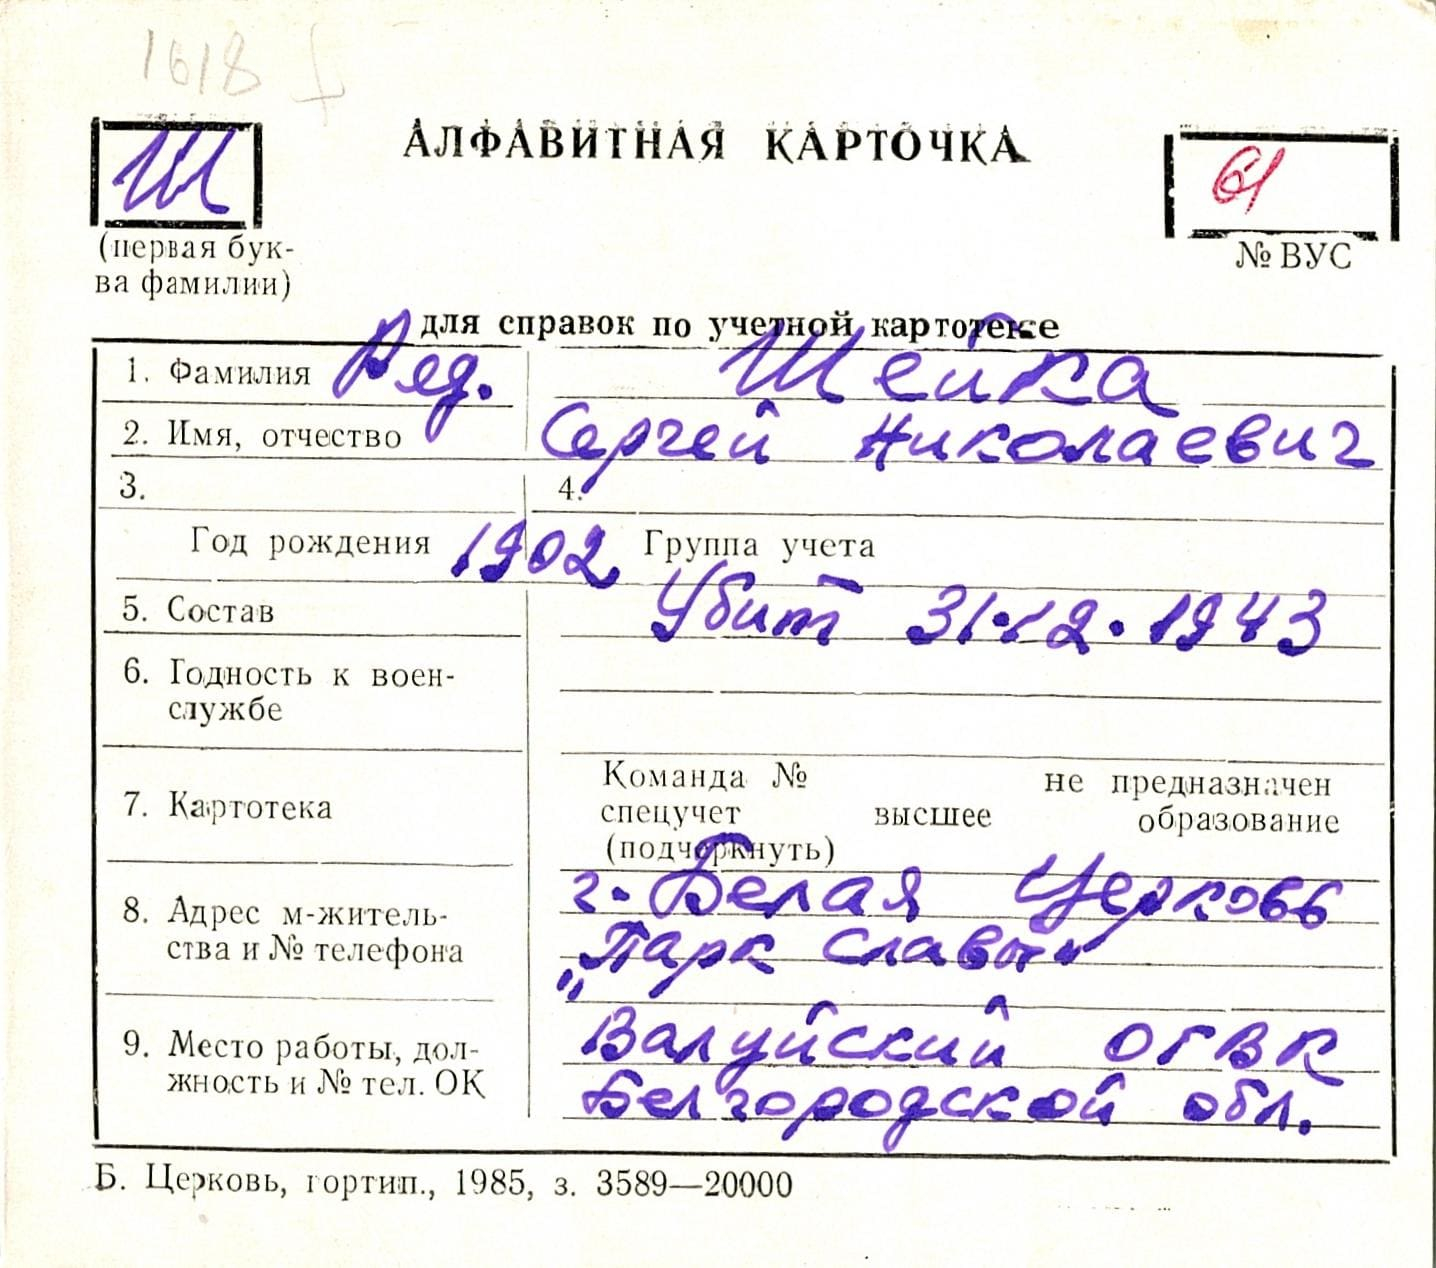 1618
Ш
АЛФАВИТНАЯ КАРТОЧКА
61
(первая бук-
ва фамилии)
№ ВУС
для справок по учетной картотеке
1. Фамилия Ряд. Шейка
2. Имя, отчество Сергей Николаевич
3. 4.
Год рождения 1902 Группа учета
5. Состав Убит 31.12.1943
6. Годность к воен-
службе
7. Картотека
Команда № не предназначен
спецучет высшее образование
(подчеркнуть)
8. Адрес м-житель-
ства и № телефона
г. Белая Церковь
"Парк Славы"
9. Место работы, дол-
жность и № тел. ОК
Валуйский ОГВК
Белгородской обл.
Б. Церковь, гортип., 1985, з. 3589—20000